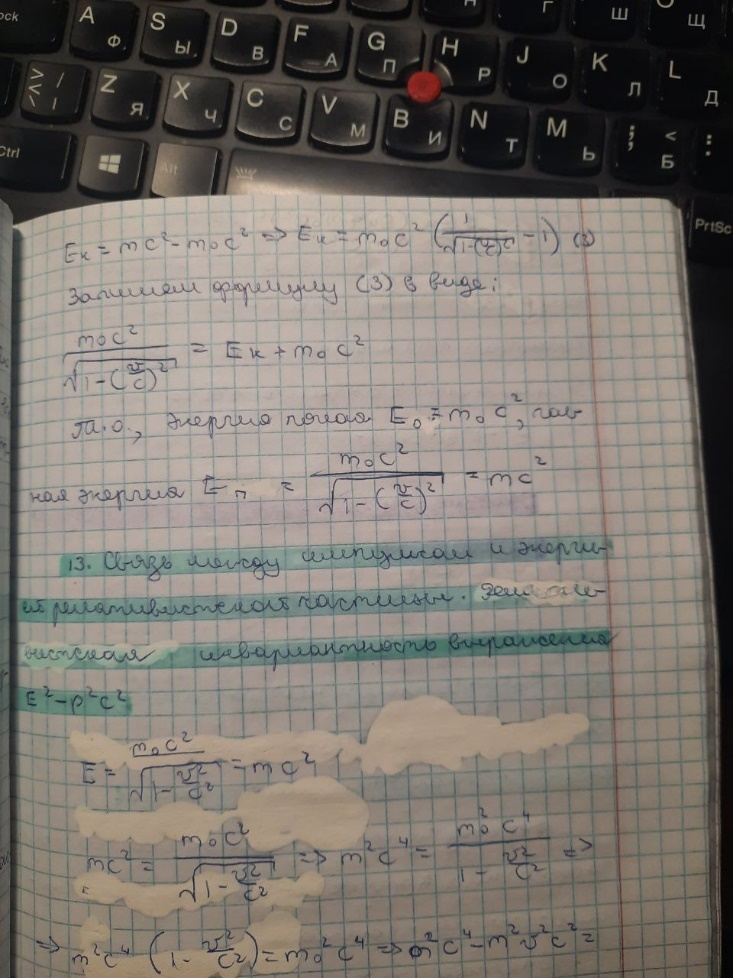 ock A Ф S Ы D В F А G П H Р J О K Л L Д Г Ш Щ
> < / | \ Z Я X Ч C С V М B И N Т M Ь ; , < Б :
Ctrl Alt PrtSc
Eк = mc² - m₀c² => Eк = m₀c² (1/√(1-(v/c)²) - 1) (3)
Запишем формулу (3) в виде:
m₀c²/√(1-(v/c)²) = Eк + m₀c²
Т.о., энергия покоя E₀ = m₀c², пол-
ная энергия Eп = m₀c²/√(1-(v/c)²) = mc²
13. Связь между импульсом и энерги-
ей релятивистской частицы. Реляти-
вистская инвариантность выражения
E² - p²c²
E = m₀c²/√(1-v²/c²) = mc²
mc² = m₀c²/√(1-v²/c²) => m²c⁴ = m₀²c⁴/(1-v²/c²) =>
=> m²c⁴ (1-v²/c²) = m₀²c⁴ => m²c⁴ - m²v²c² =